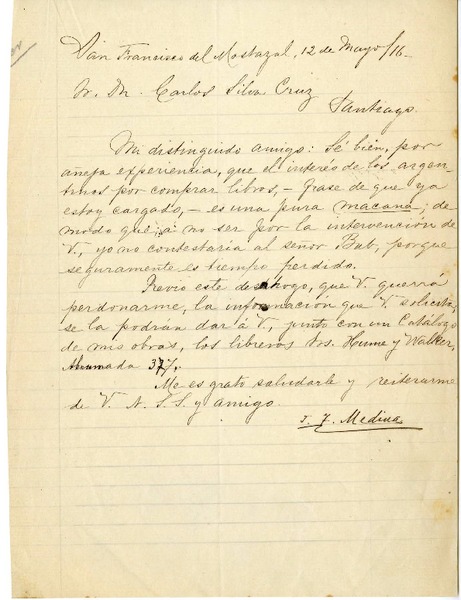 San Francisco del Mostazal, 12 de Mayo/16.
Sr. Dn. Carlos Silva Cruz
Santiago.
Mi distinguido amigo: Sé bien, por
añeja experiencia, que el interés de los argen-
tinos por comprar libros, - frase de que ya
estoy cargado, - es una pura macana; de
modo que, a no ser por la intervención de
V., yo no contestaría al señor Bab, porque
seguramente es tiempo perdido.
Previo este desahogo, que V. querrá
perdonarme, la información que V. solicita,
se la podrán dar á V., junto con un Catálogo
de mis obras, los libreros Srs. Hume y Walker,
Ahumada 377.
Me es grato saludarle y reiterarme
de V. A. S. S. y amigo
J. T. Medina